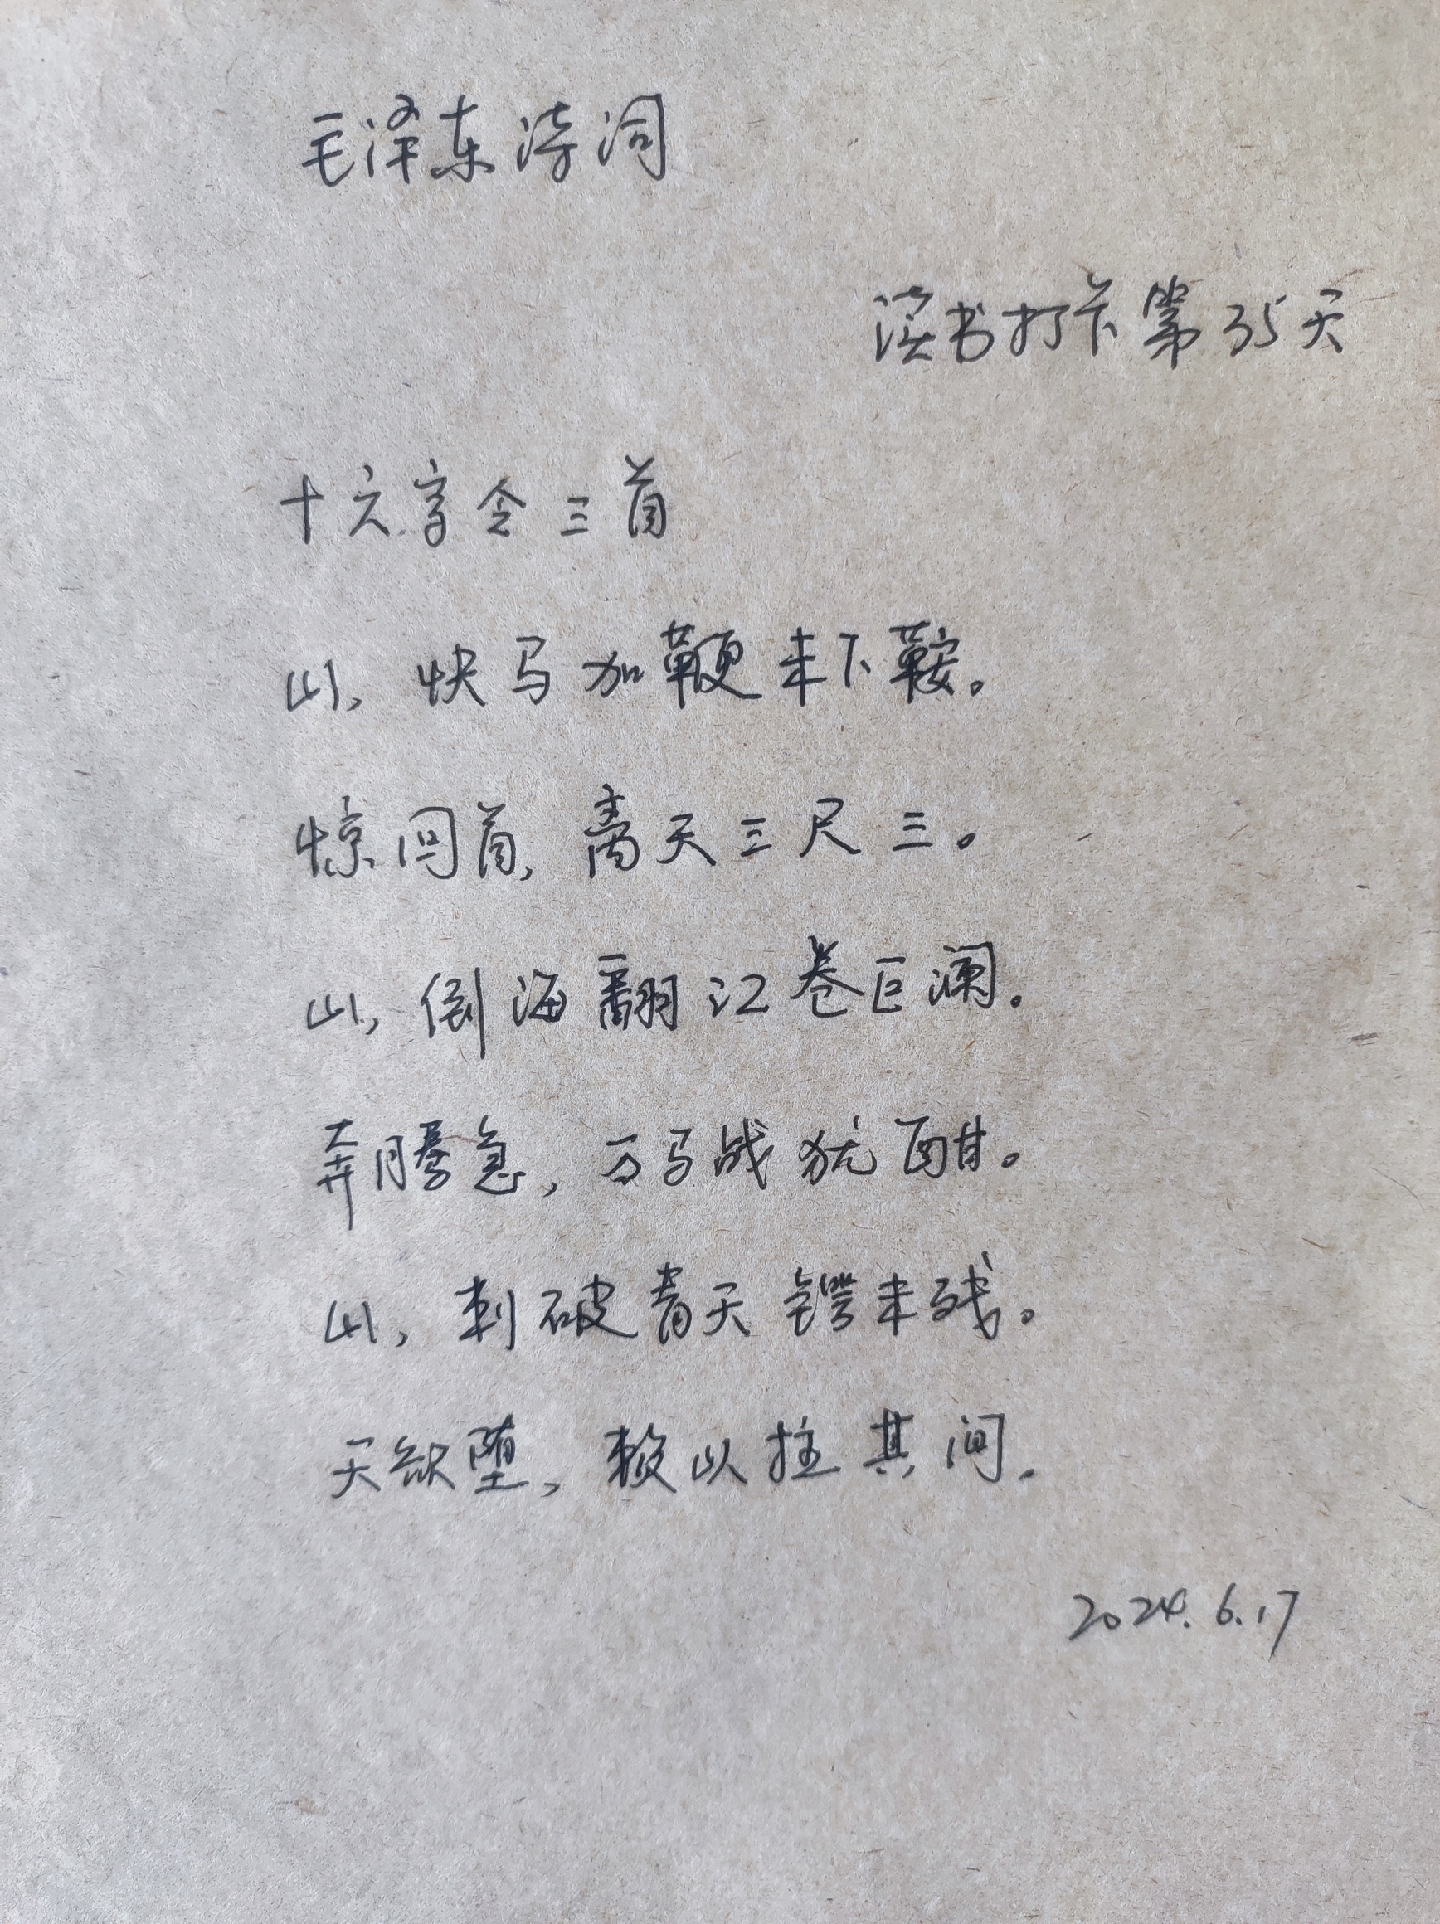 毛泽东诗词
读书打卡第35天
十六字令三首
山,快马加鞭未下鞍。
惊回首,离天三尺三。
山,倒海翻江卷巨澜。
奔腾急,万马战犹酣。
山,刺破青天锷未残。
天欲堕,赖以拄其间.
2024.6.17